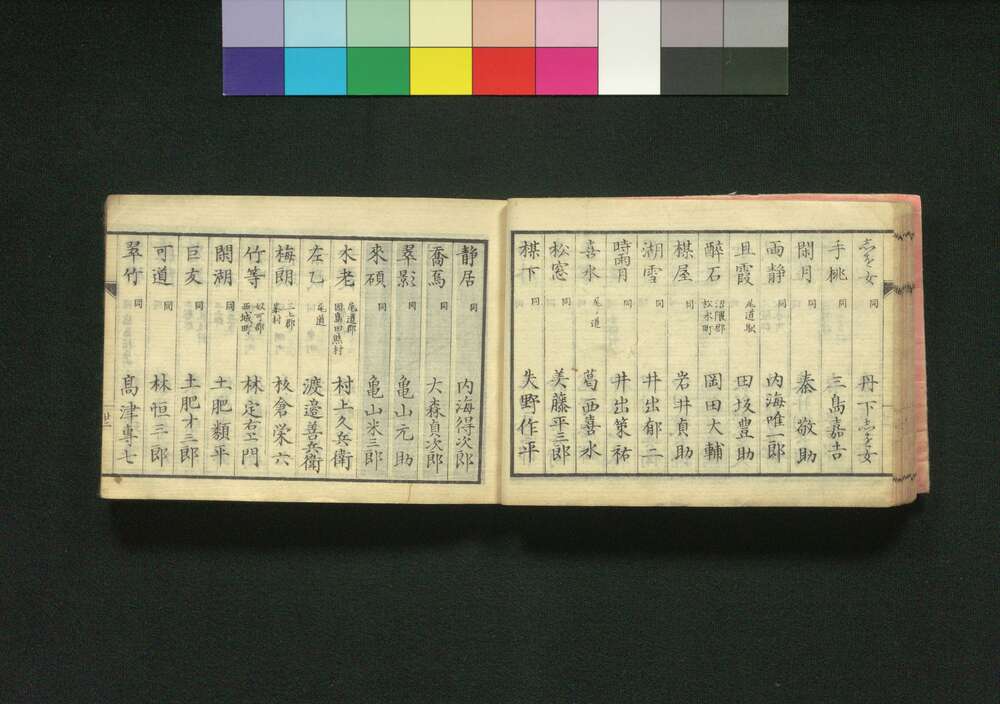 志を女 同 丹下志を女
手桃 同 三島嘉吉
閑月 同 秦敬助
雨静 同 内海唯一郎
且霞 尾道駅 田坂豊助
酔石 沼隈郡松永町 岡田大輔
楳屋 同 岩井貞助
湖雪 同 井出郁二
時雨月 同 井出策祐
喜水 尾道 葛西喜水
松窓 同 美藤平三郎
楳下 同 矢野作平
静居 同 内海得次郎
喬蔦 同 大森貞次郎
翠影 同 亀山元助
来碩 同 亀山米三郎
水老 尾道郡田熊村 村上久兵衛
左乙 尾道 渡邉善兵衛
梅朗 三上郡峯村 板倉栄六
竹等 奴可郡西城町 林定右エ門
閑湖 同 土肥類平
巨友 同 土肥才三郎
可道 同 林恒三郎
翠竹 同 高津専七